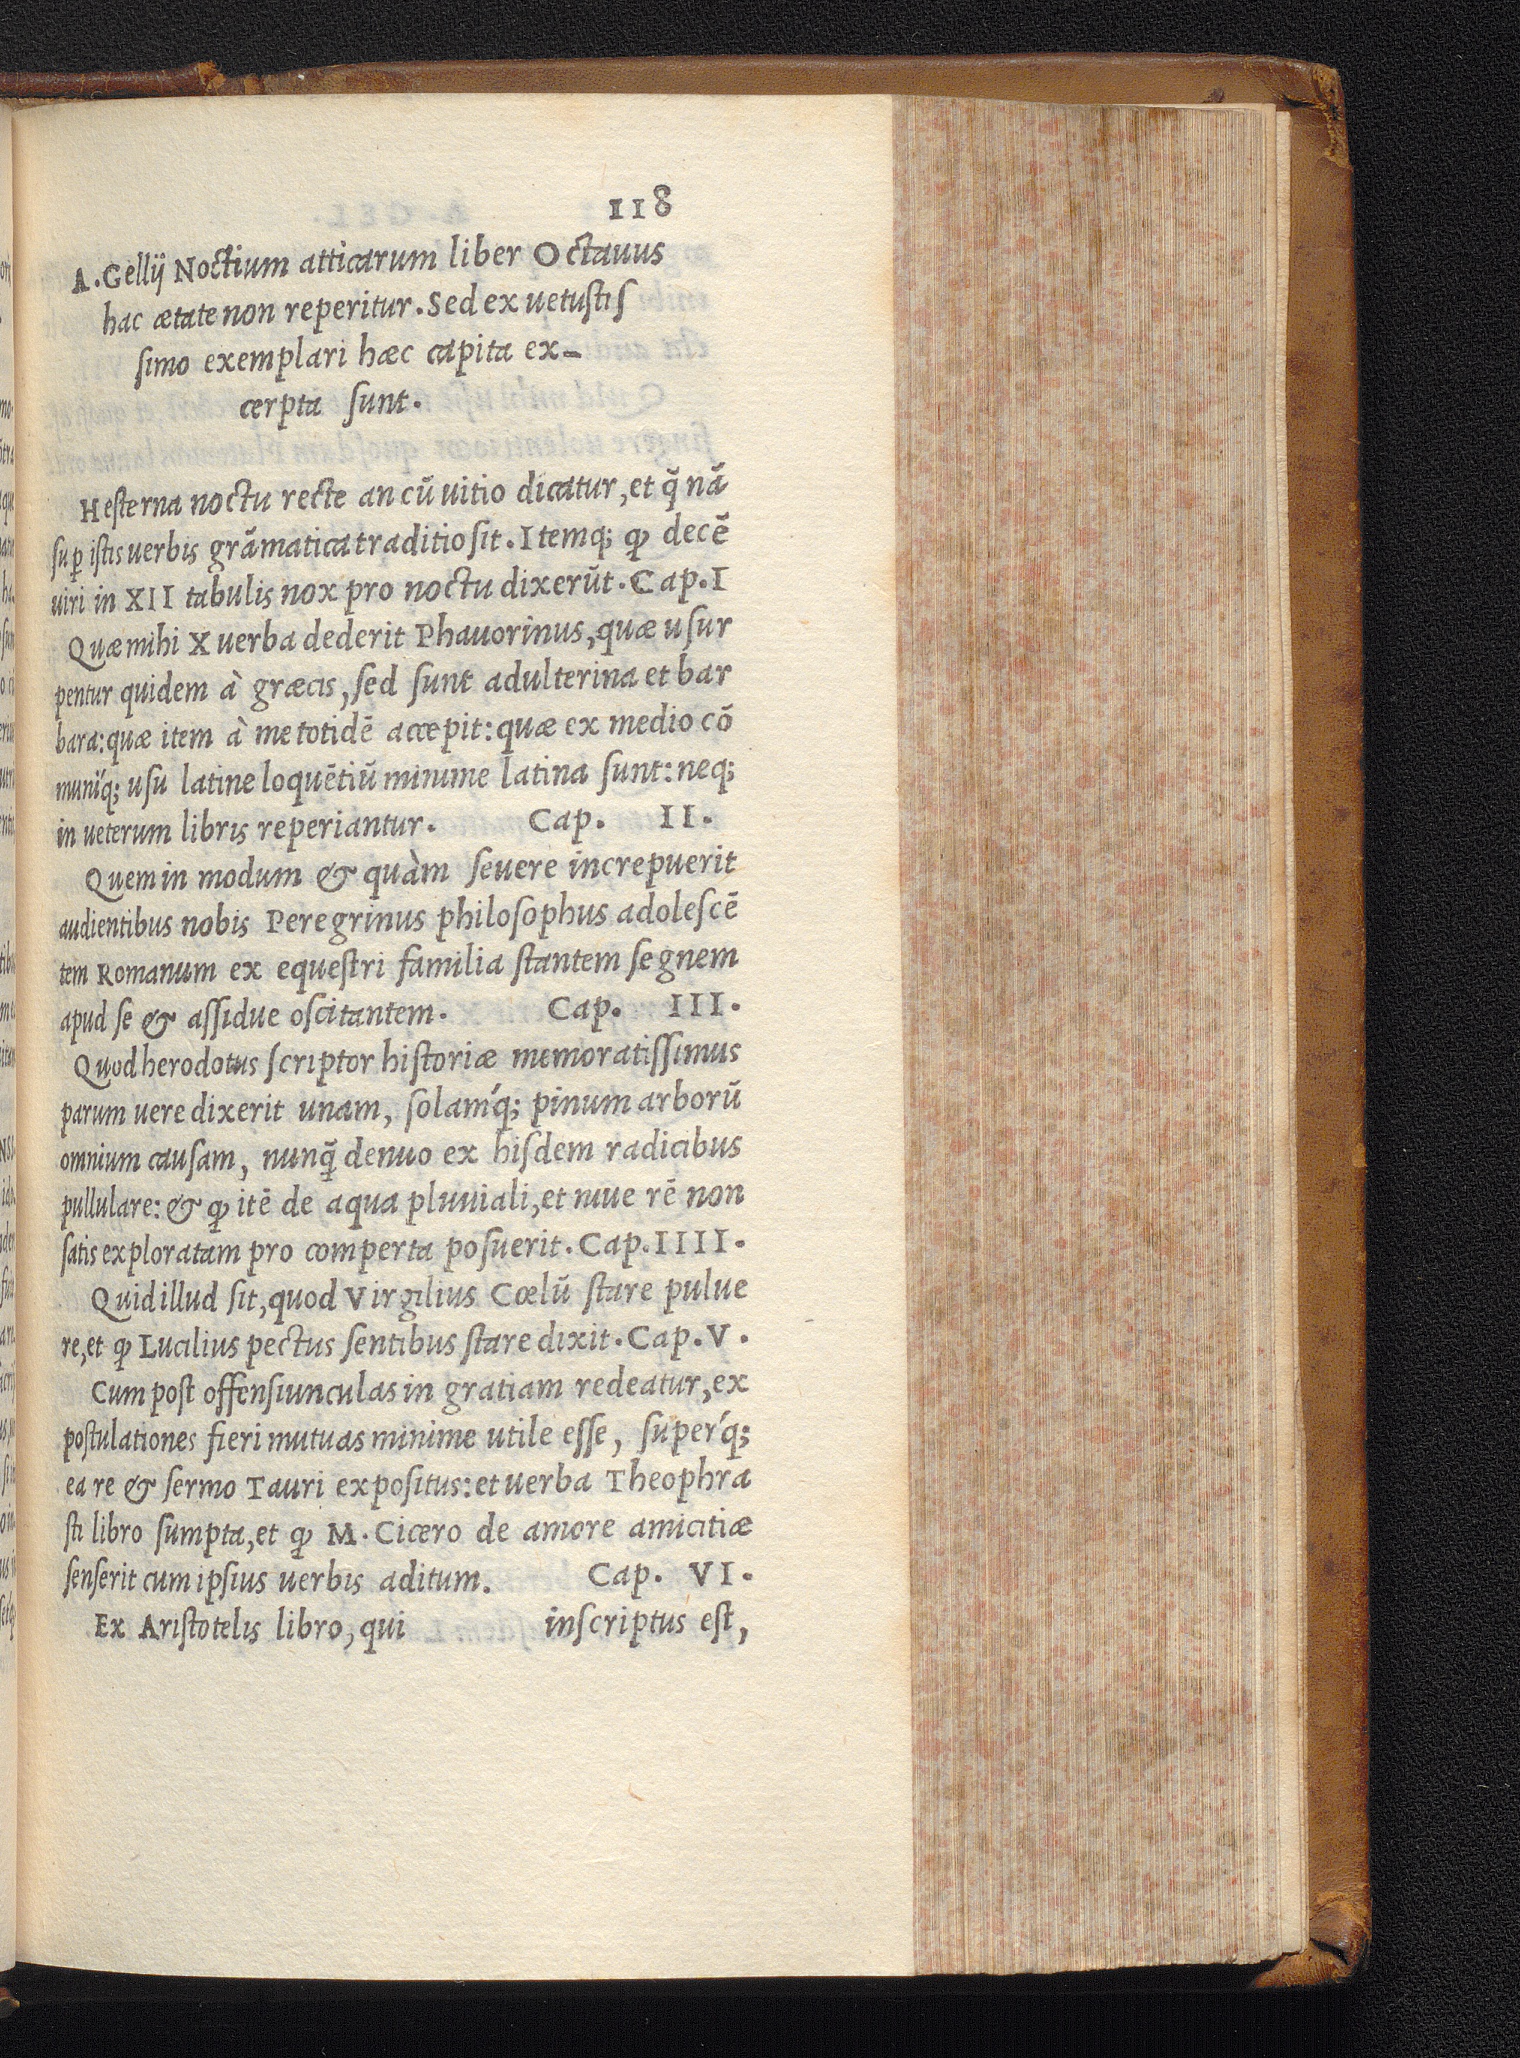 118
A. Gellij Noctium atticarum liber Octauus
hac ætate non reperitur. Sed ex uetustis
simo exemplari hæc capita ex-
cerpta sunt.
Hesterna noctu recte an cū uitio dicatur, et q̄ nā
sup̱ istis uerbis grāmatica traditio sit. Itemq; ꝙ decē
uiri in XII tabulis nox pro noctu dixerūt. Cap. I
Quæ mihi X uerba dederit Phauorinus, quæ usur
pentur quidem à græcis, sed sunt adulterina et bar
bara: quæ item à me totidē accepit: quæ ex medio cō
muníq; usu latine loquētiū minime latina sunt: neq;
in ueterum libris reperiantur. Cap. II.
Quem in modum & quàm seuere increpuerit
audientibus nobis Peregrinus philosophus adolescē
tem Romanum ex equestri familia stantem segnem
apud se & assidue oscitantem. Cap. III.
Quod herodotus scriptor historiæ memoratissimus
parum uere dixerit unam, solamq́; pinum arborū
omnium causam, nunq̄ denuo ex hisdem radicibus
pullulare: & ꝙ itē de aqua pluuiali, et niue rē non
satis exploratam pro comperta posuerit. Cap. IIII.
Quid illud sit, quod Virgilius Cœlū stare pulue
re, et ꝙ Lucilius pectus sentibus stare dixit. Cap. V.
Cum post offensiunculas in gratiam redeatur, ex
postulationes fieri mutuas minime utile esse, superq́;
ea re & sermo Tauri expositus: et uerba Theophra
sti libro sumpta, et ꝙ M. Cicero de amore amicitiæ
senserit cum ipsius uerbis aditum. Cap. VI.
Ex Aristotelis libro, qui inscriptus est,